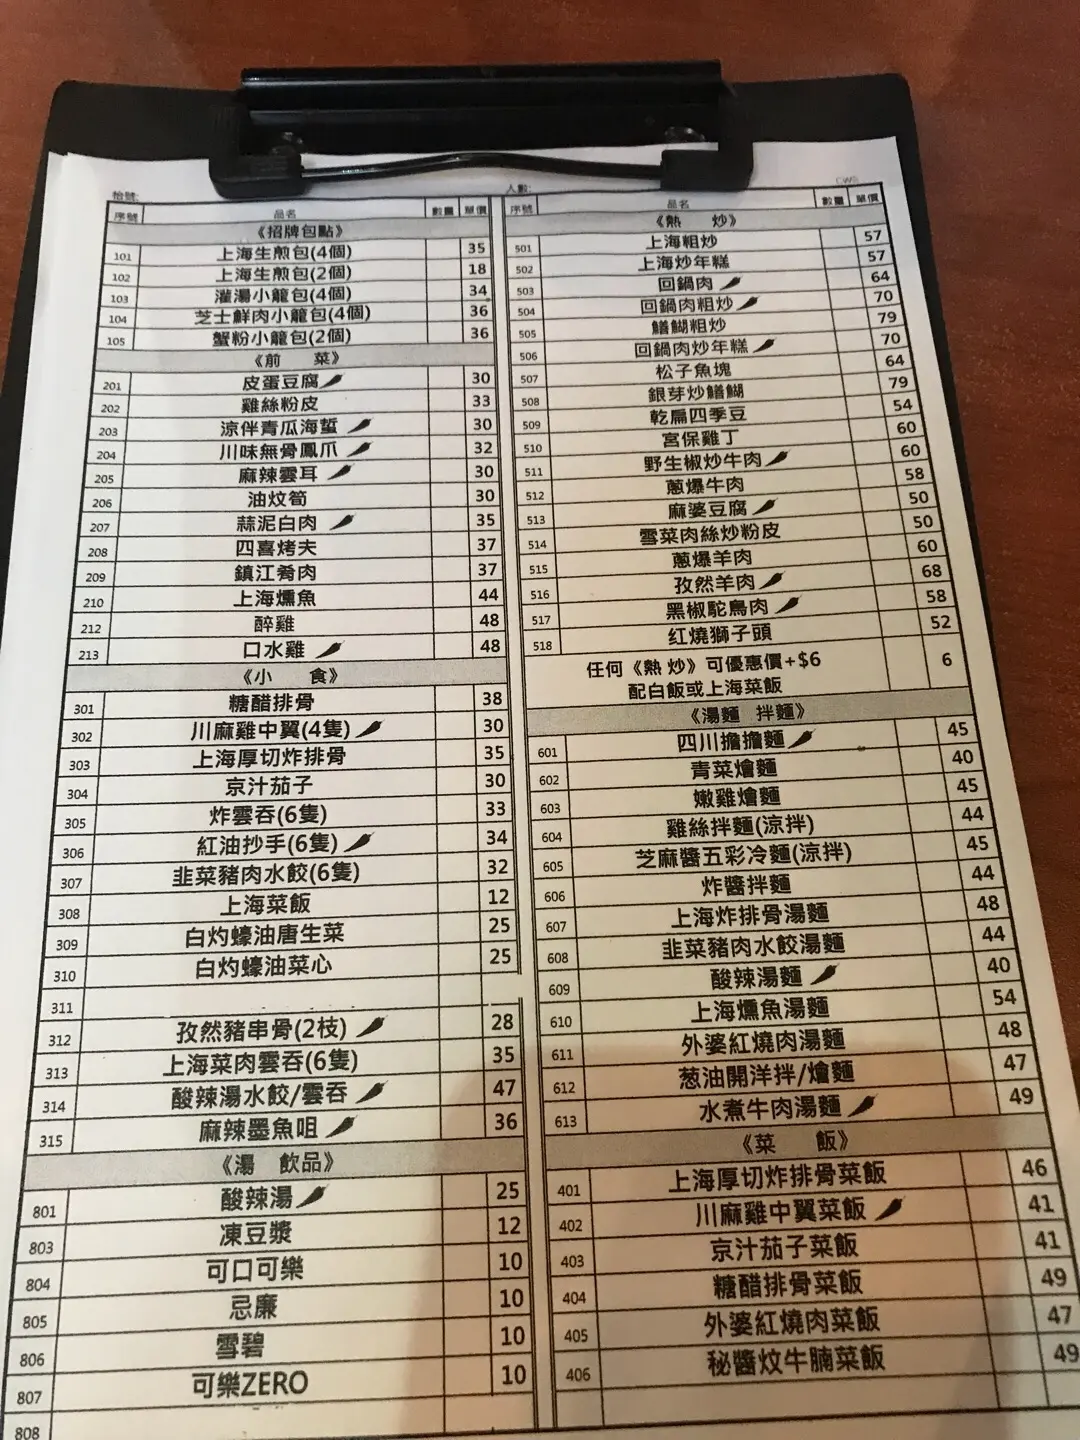 枱號:
序號 品名 數量 單價
《招牌包點》
101 上海生煎包(4個) 35
102 上海生煎包(2個) 18
103 灌湯小籠包(4個) 34
104 芝士鮮肉小籠包(4個) 36
105 蟹粉小籠包(2個) 36
《前 菜》
201 皮蛋豆腐 30
202 雞絲粉皮 33
203 涼伴青瓜海蜇 30
204 川味無骨鳳爪 32
205 麻辣雲耳 30
206 油炆筍 30
207 蒜泥白肉 35
208 四喜烤夫 37
209 鎮江肴肉 37
210 上海燻魚 44
212 醉雞 48
213 口水雞 48
《小 食》
301 糖醋排骨 38
302 川麻雞中翼(4隻) 30
303 上海厚切炸排骨 35
304 京汁茄子 30
305 炸雲吞(6隻) 33
306 紅油抄手(6隻) 34
307 韭菜豬肉水餃(6隻) 32
308 上海菜飯 12
309 白灼蠔油唐生菜 25
310 白灼蠔油菜心 25
311
312 孜然豬串骨(2枝) 28
313 上海菜肉雲吞(6隻) 35
314 酸辣湯水餃/雲吞 47
315 麻辣墨魚咀 36
《湯 飲品》
801 酸辣湯 25
803 凍豆漿 12
804 可口可樂 10
805 忌廉 10
806 雪碧 10
807 可樂ZERO 10
808
人數: CWB
序號 品名 數量 單價
《熱 炒》
501 上海粗炒 57
502 上海炒年糕 57
503 回鍋肉 64
504 回鍋肉粗炒 70
505 鱔鰗粗炒 79
506 回鍋肉炒年糕 70
507 松子魚塊 64
508 銀芽炒鱔鰗 79
509 乾扁四季豆 54
510 宮保雞丁 60
511 野生椒炒牛肉 60
512 蔥爆牛肉 58
513 麻婆豆腐 50
514 雪菜肉絲炒粉皮 50
515 蔥爆羊肉 60
516 孜然羊肉 68
517 黑椒鴕鳥肉 58
518 红燒獅子頭 52
任何《熱 炒》可優惠價+$6 6
配白飯或上海菜飯
《湯麵 拌麵》
601 四川擔擔麵 45
602 青菜燴麵 40
603 嫩雞燴麵 45
604 雞絲拌麵(涼拌) 44
605 芝麻醬五彩冷麵(涼拌) 45
606 炸醬拌麵 44
607 上海炸排骨湯麵 48
608 韭菜豬肉水餃湯麵 44
609 酸辣湯麵 40
610 上海燻魚湯麵 54
611 外婆紅燒肉湯麵 48
612 葱油開洋拌/燴麵 47
613 水煮牛肉湯麵 49
《菜 飯》
401 上海厚切炸排骨菜飯 46
402 川麻雞中翼菜飯 41
403 京汁茄子菜飯 41
404 糖醋排骨菜飯 49
405 外婆紅燒肉菜飯 47
406 秘醬炆牛腩菜飯 49